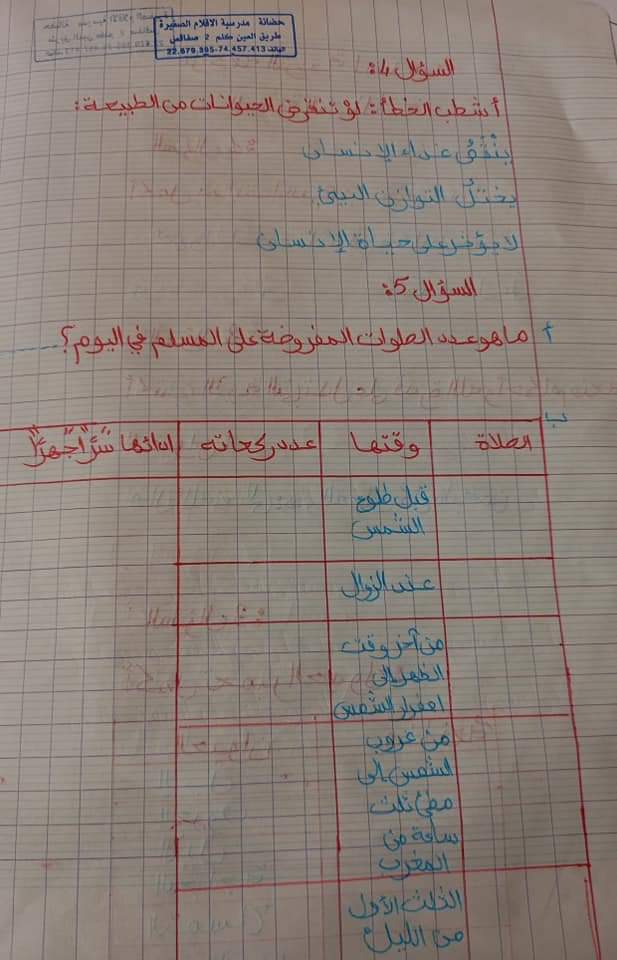 حضانة مدرسية الاقلام الصغيرة
طريق العين كلم 2 صفاقس
الهاتف 22.679.395-74.457.413
السؤال 4:
أشطب الخطأ: لو تنقرض الحيوانات من الطبيعة:
ينقص غداء الإنسان
يختل التوازن البيئي
لا يؤثر على حياة الإنسان
السؤال 5:
أ ما هو عدد الصلوات المفروضة على المسلم في اليوم؟
ب
الصلاة وقتها عدد ركعاته ادائها سرًّا جهرًا
قبل طلوع
الشمس
عند الزوال
من آخر وقت
الظهر إلى
اصفرار الشمس
من غروب
الشمس إلى
مضي ثلث
ساعة من
المغرب
الثلث الأول
من الليل